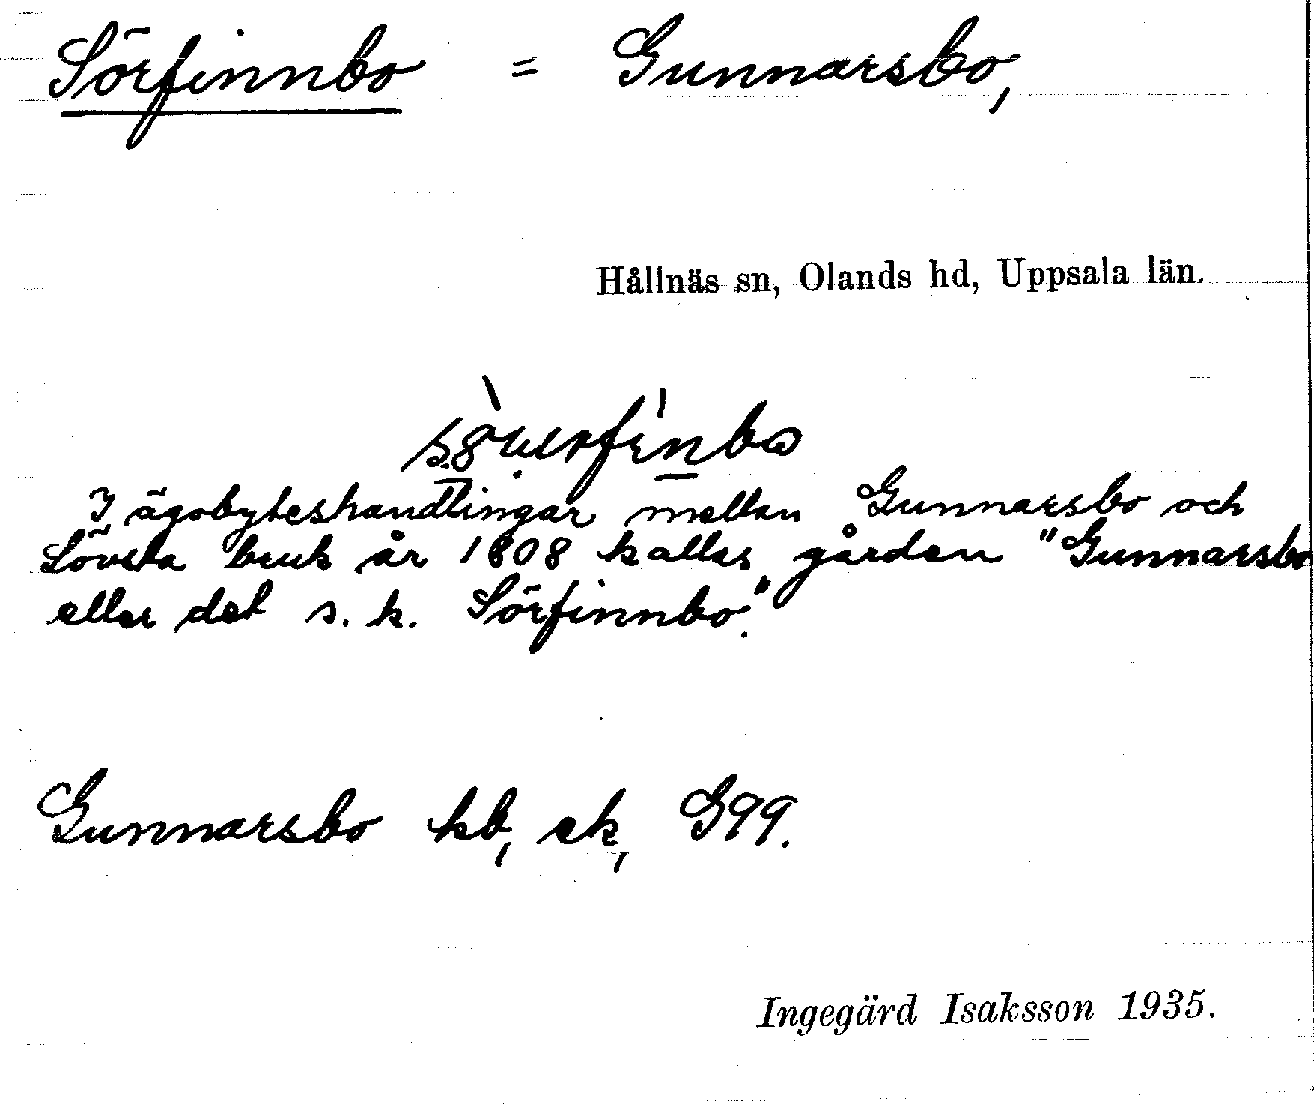 Sörfinnbo = Gunnarsbo,
Hållnäs sn, Olands hd, Uppsala län.
I ägobyteshandlingar mellan Gunnarsbo och
Lövsta bruk år 1808 kallas gården "Gunnarsbo
eller det s. k. Sörfinnbo."
Gunnarsbo kb, ek, G99.
Ingegärd Isaksson 1935.